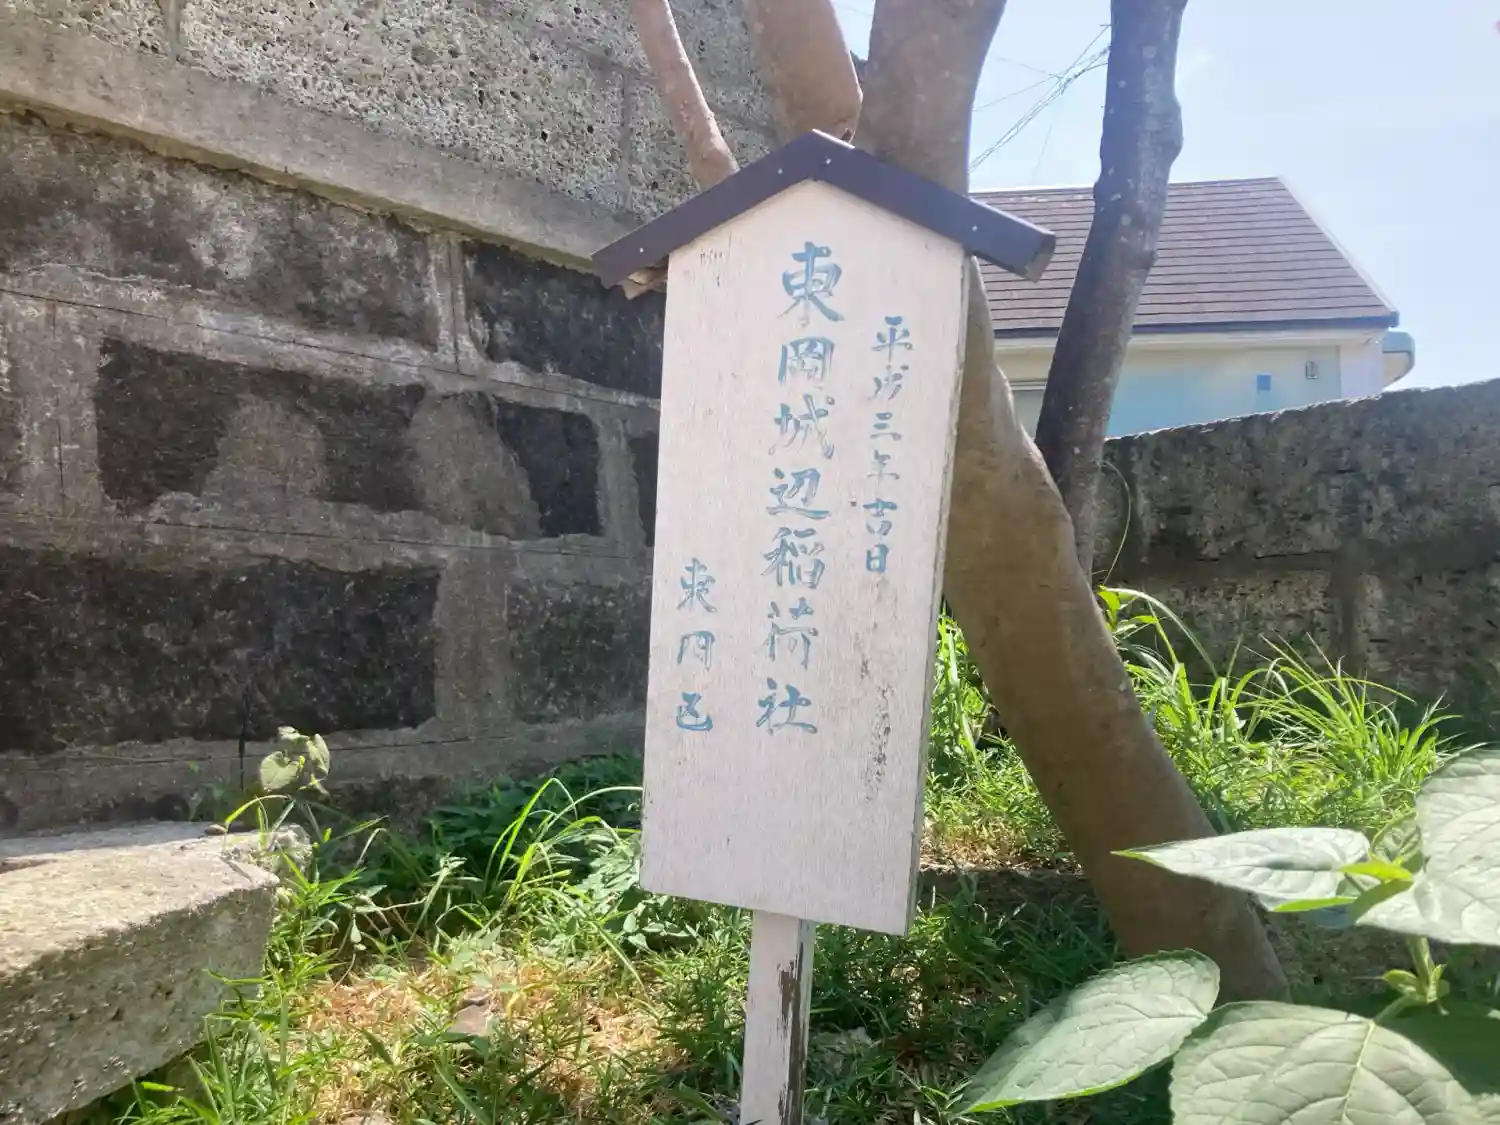 平成三年吉日
東岡城辺稲荷社
東岡区